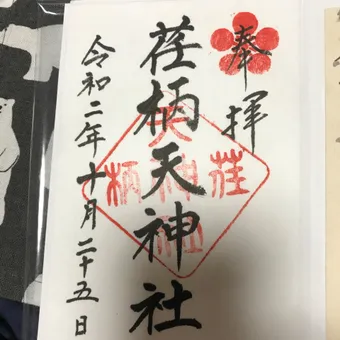 奉拝
荏柄天神社
令和二年十月二十五日
荏柄天神社